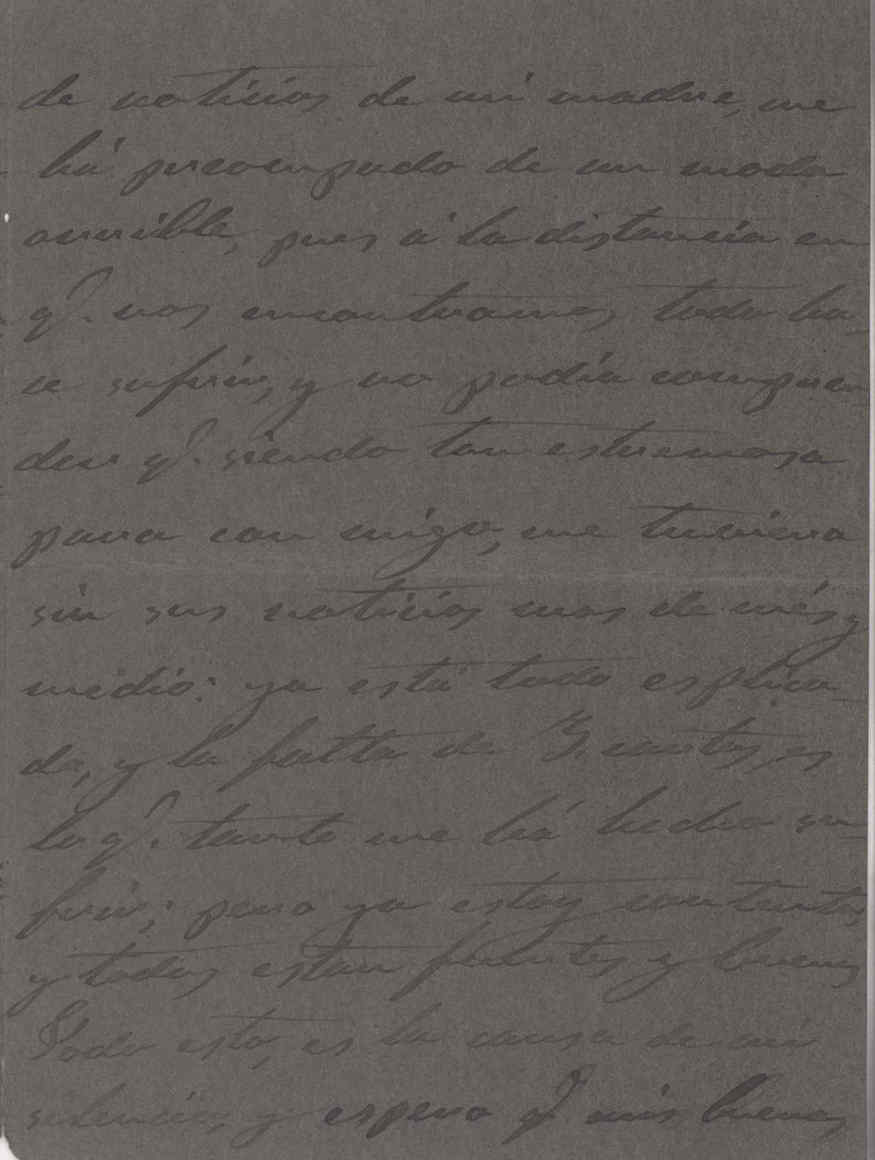 de noticias de mi madre, me
há preocupado de un modo
orrible, pues á la distancia en
q.e nos encontramos, todo ha-
ce sufrir, y no podía compren-
der q.e siendo tan estremosa
para con migo, me tubiera
sin sus noticias mas de més y
medio: ya está todo esplica-
do, y la falta de 3. cartas, es
lo q.e tanto me há hecho su-
frir; pero ya estoy contento,
y todos estan fuertes y buenos
Todo esto, es la causa de mi
silencio, y espero q.e mis buenos